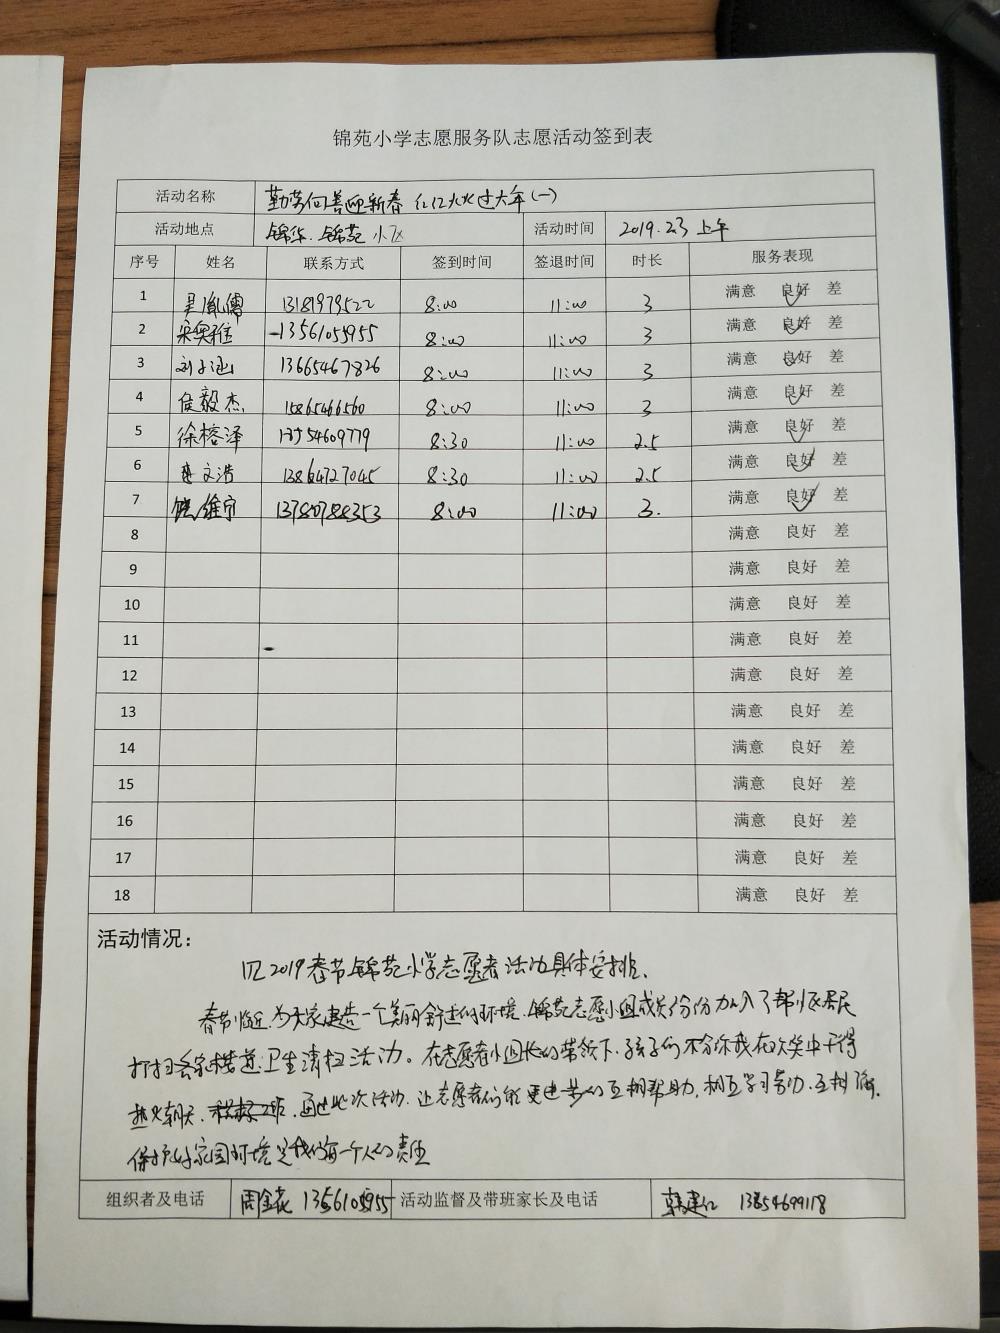 锦苑小学志愿服务队志愿活动签到表
活动名称 勤劳向善迎新春 红红火火过大年(一)
活动地点 锦华、锦苑小区 活动时间 2019.2.3 上午
序号 姓名 联系方式 签到时间 签退时间 时长 服务表现
1 13181979522 8:00 11:00 3 满意 良好 差
2 13561055955 8:00 11:00 3 满意 良好 差
3 刘子涵 13665467826 8:00 11:00 3 满意 良好 差
4 侯毅杰 15865466560 8:00 11:00 3 满意 良好 差
5 徐榕泽 54609779 8:30 11:00 2.5 满意 良好 差
6 文浩 13864727045 8:30 11:00 2.5 满意 良好 差
7 维宁 13780788353 8:00 11:00 3. 满意 良好 差
8 满意 良好 差
9 满意 良好 差
10 满意 良好 差
11 满意 良好 差
12 满意 良好 差
13 满意 良好 差
14 满意 良好 差
15 满意 良好 差
16 满意 良好 差
17 满意 良好 差
18 满意 良好 差
活动情况:
2019春节锦苑小学志愿者活动具体安排.
春节临近,为大家建造一个美丽舒适的环境.锦苑志愿小组成员纷纷加入了帮小区居民
打扫楼道卫生清扫活动。在志愿者小组长的带领下.孩子们不分你我在欢笑中干得
热火朝天. 通过此次活动.让志愿者们能更进一步的互相帮助,相互学习
保护好家园环境是我们每一个人的责任
组织者及电话 13561055955 活动监督及带班家长及电话 韩建红 13854699118